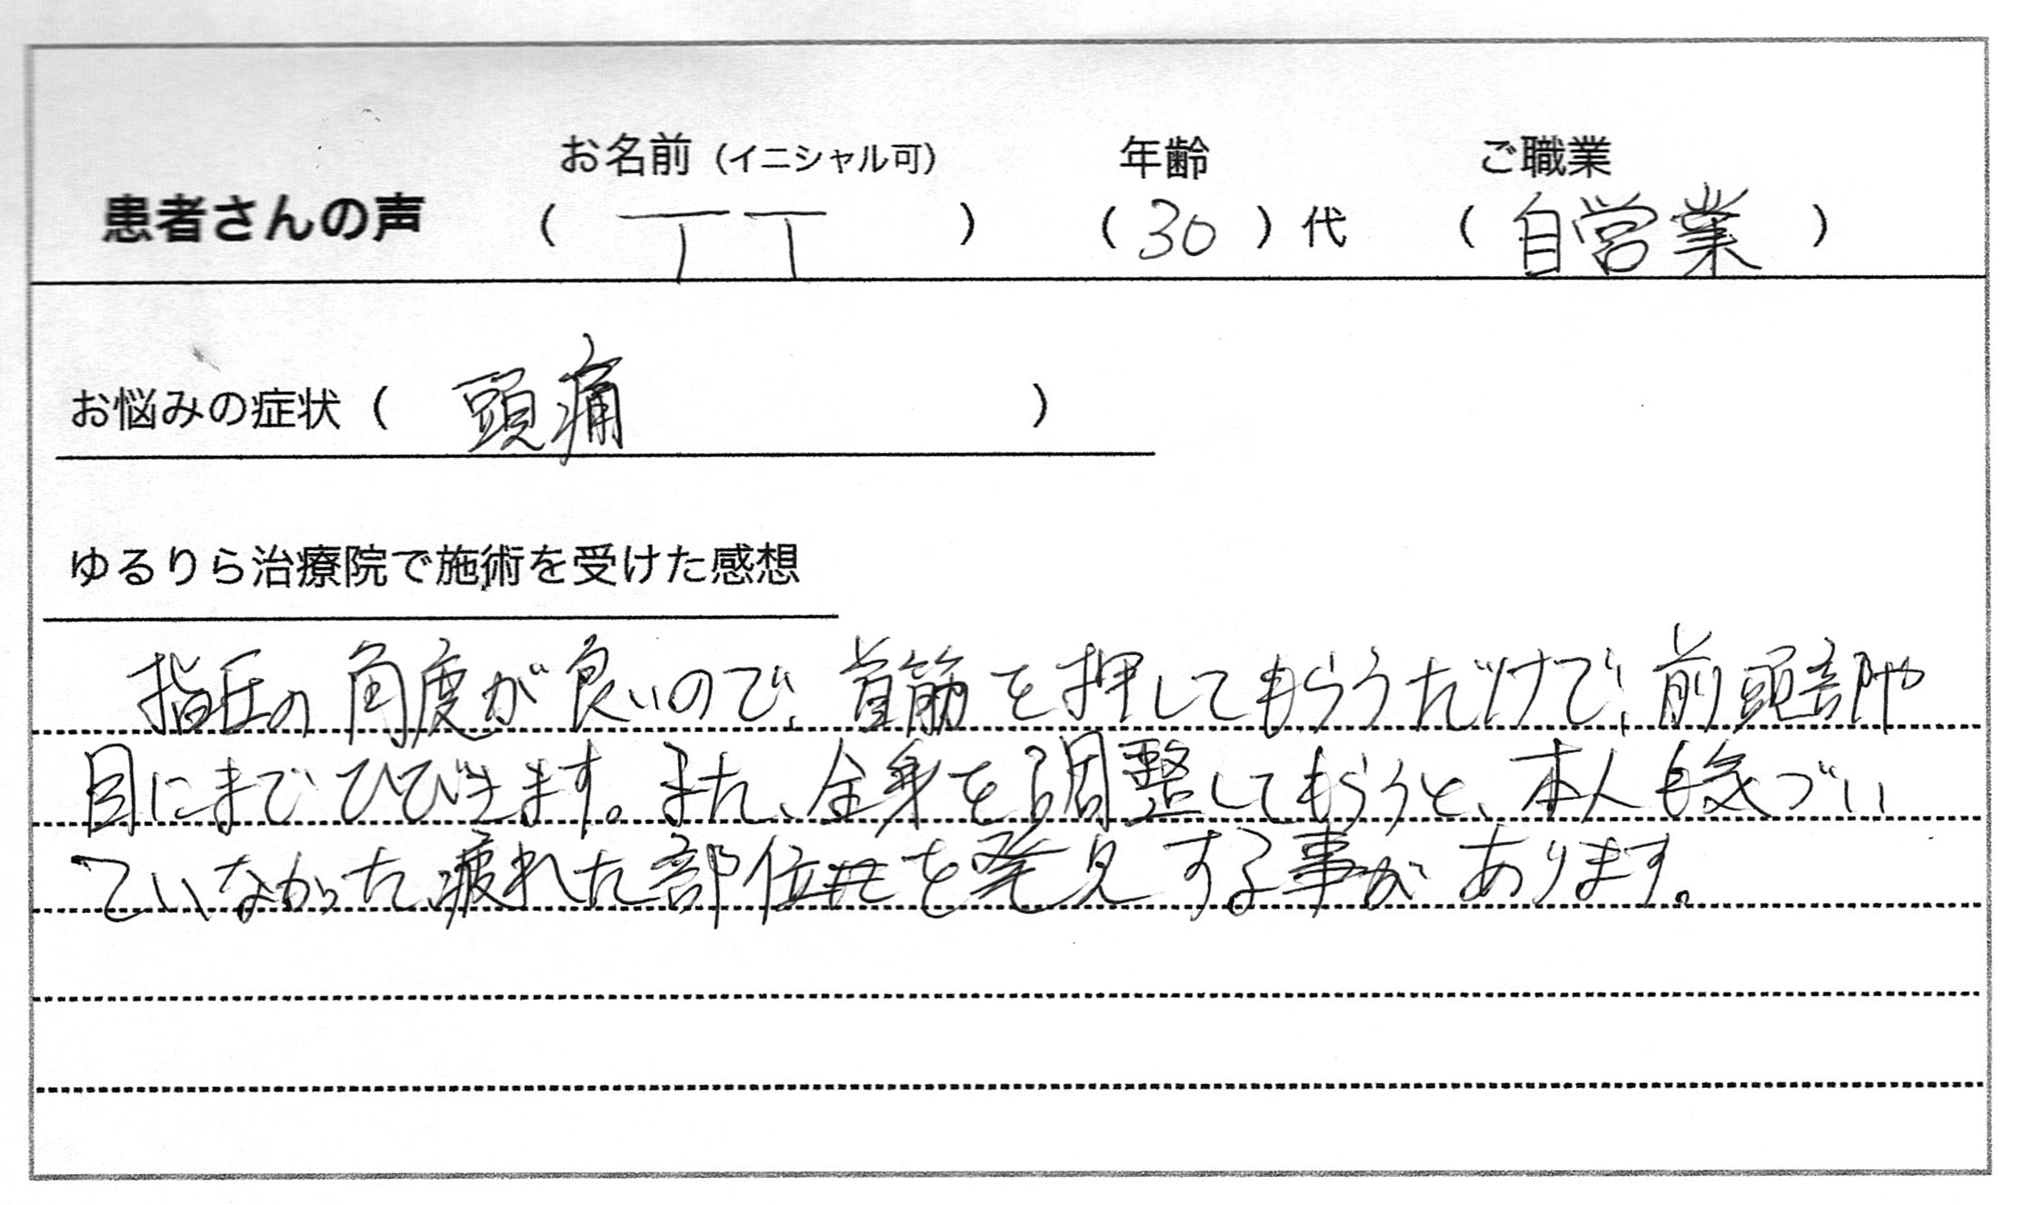 お名前（イニシャル可） 年齢 ご職業
患者さんの声 （ TT ） （ 30 ）代 （ 自営業 ）
お悩みの症状（ 頭痛 ）
ゆるりら治療院で施術を受けた感想
指圧の角度が良いので、首筋を押してもらうだけで、前頭部や
目にまでひびきます。また、全身を調整してもらうと、本人も気づい
ていなかった疲れた部位を発見する事があります。